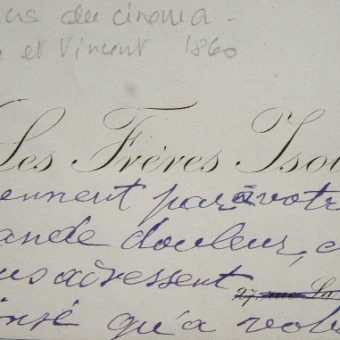 du cinéma -
et Vincent 1860
Les Frères Iso
ennent par à votre
ande douleur, 
us adressent 27, rue La
insi qu'a votre